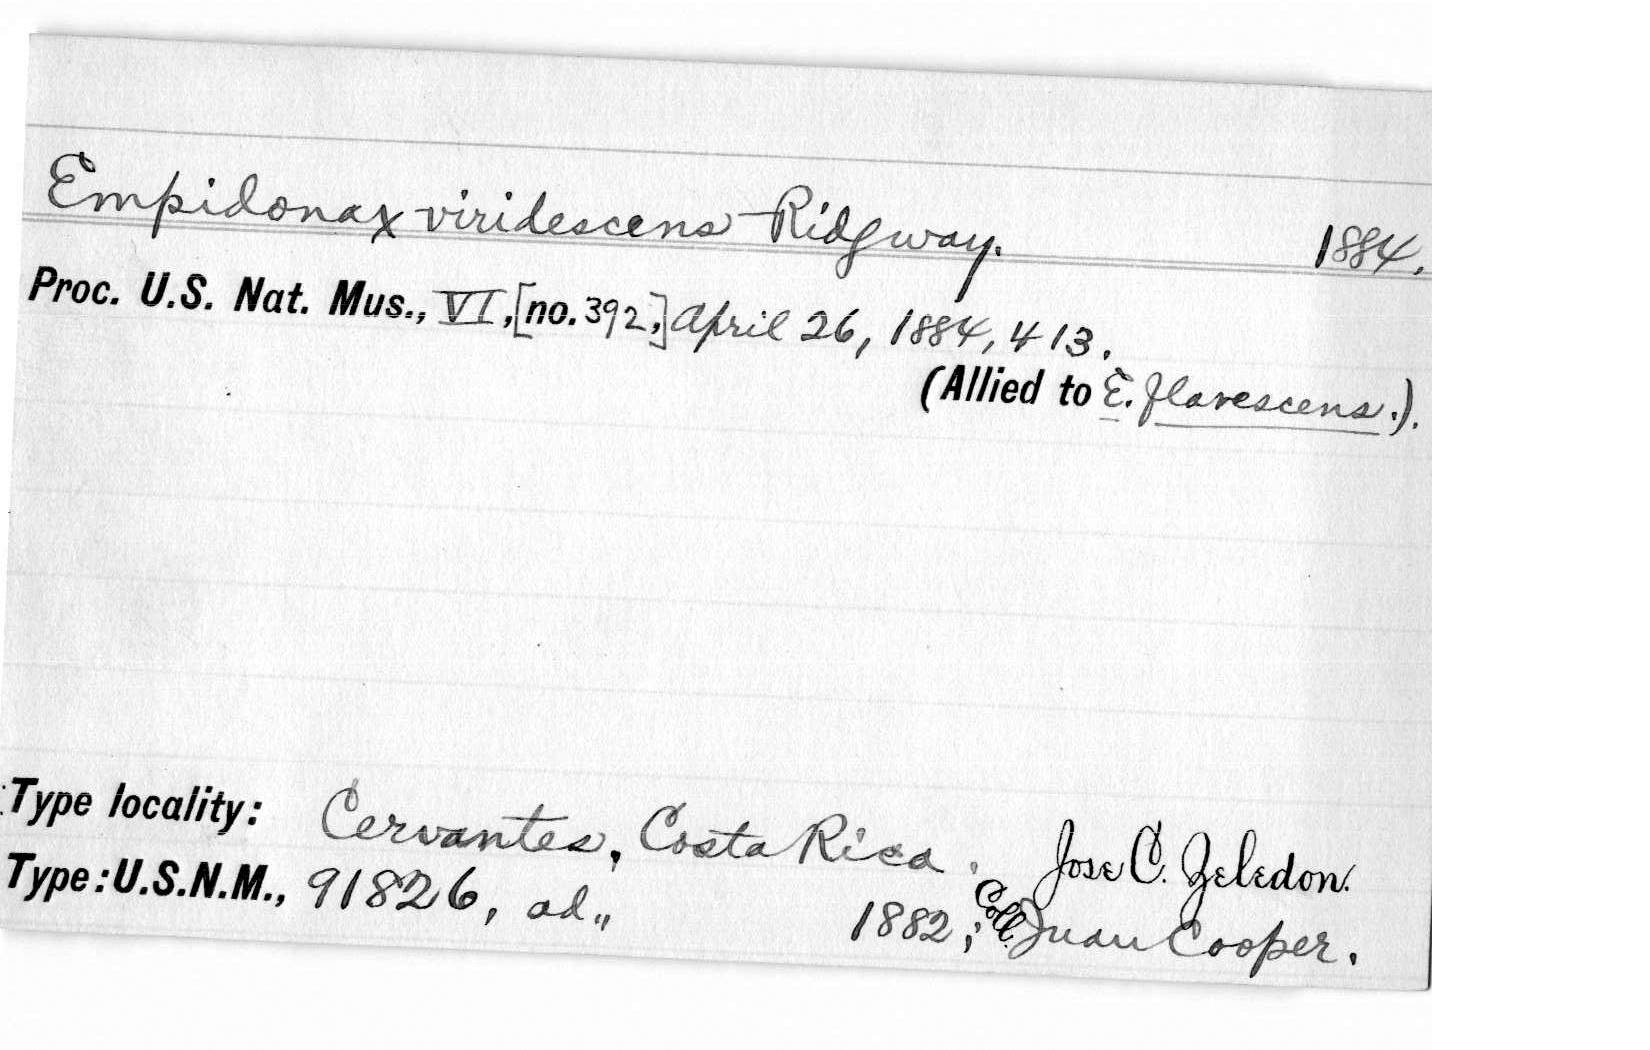 Empidonax viridescens Ridgway. 1884.
Proc. U.S. Nat. Mus., VI, [no. 392,] April 26, 1884, 413.
(Allied to E. flavescens.).
Type locality: Cervantes, Costa Rica. Jose C. Zeledon.
Type: U.S.N.M., 91826, ad., 1882; Coll. Juan Cooper.